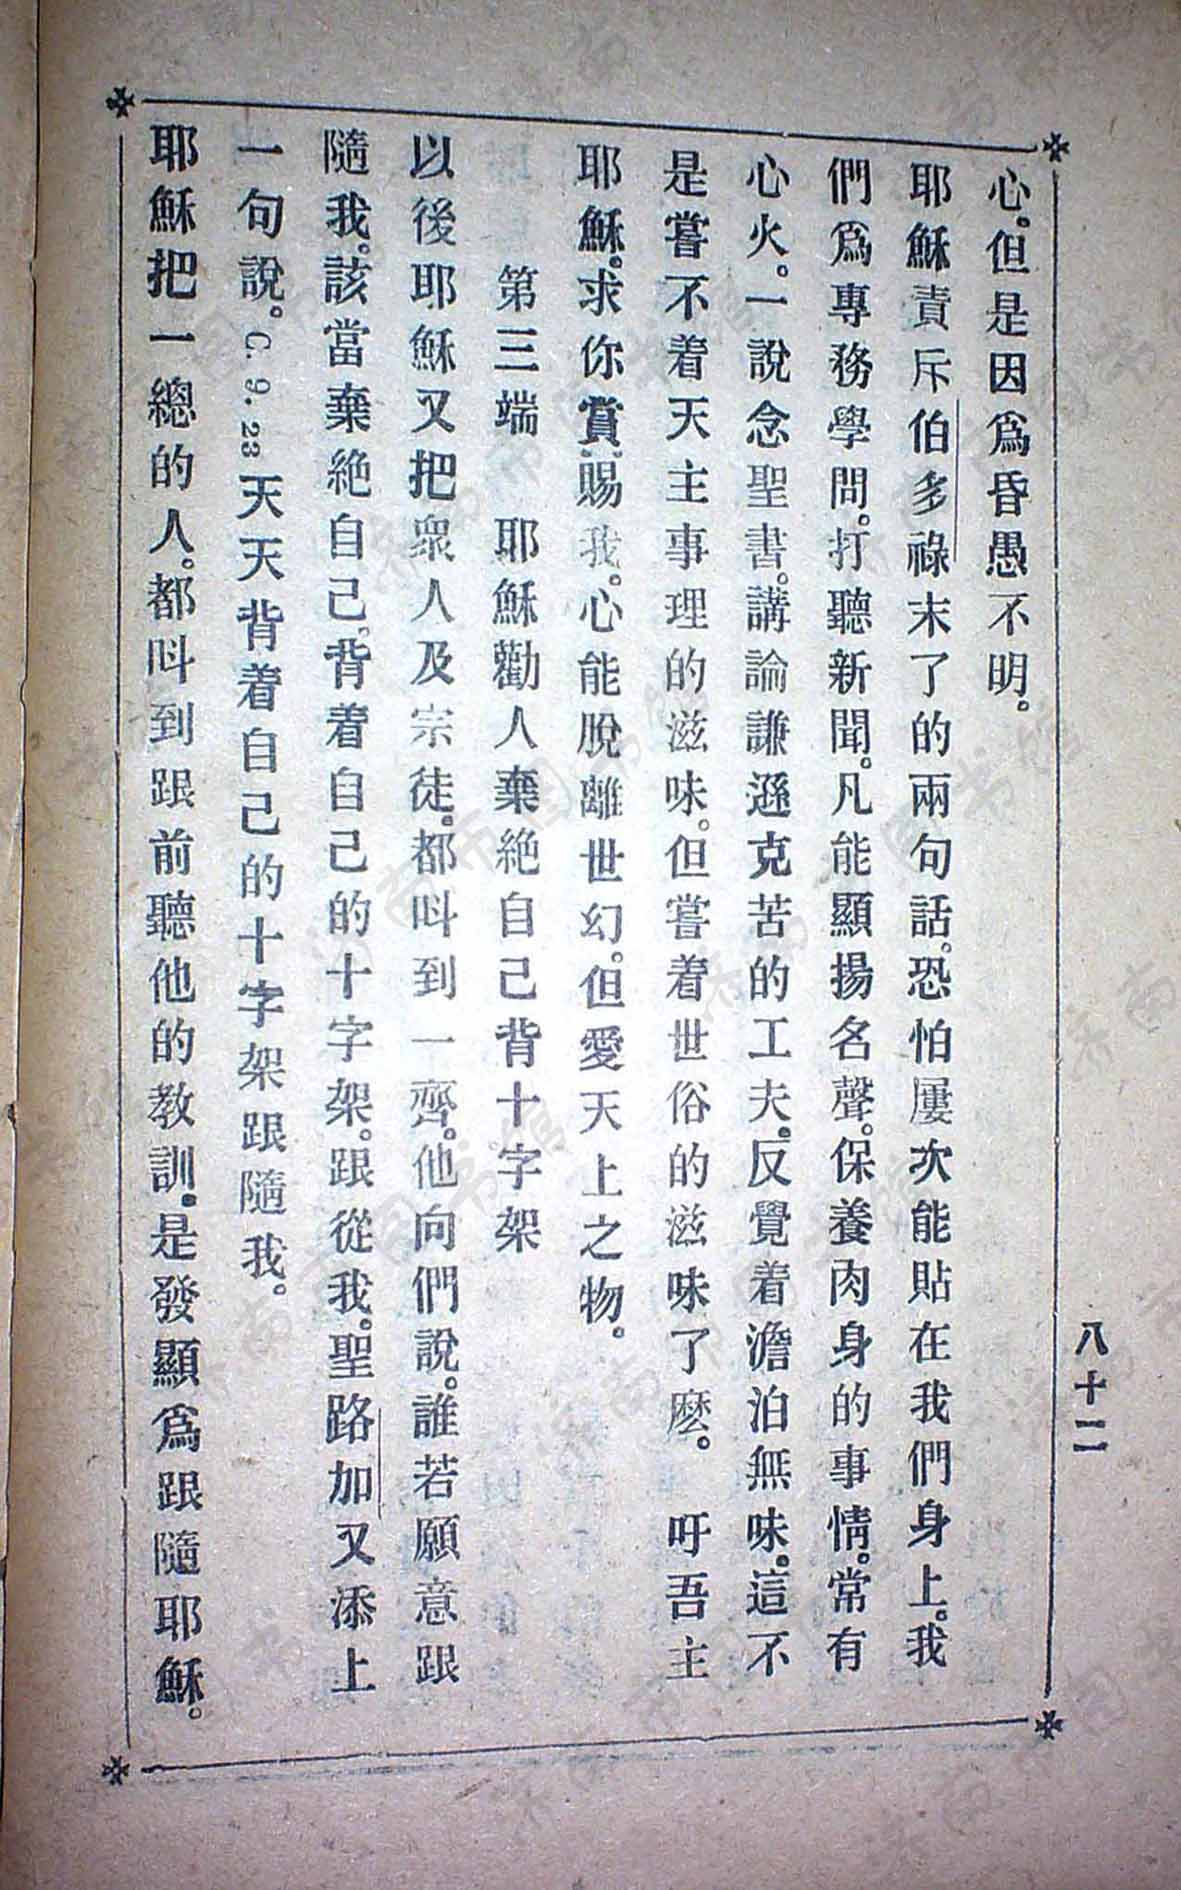 八十二
心。但是因爲昏愚不明。
耶穌責斥伯多祿末了的兩句話。恐怕屢次能貼在我們身上。我
們爲專務學問。打聽新聞。凡能顯揚名聲。保養肉身的事情。常有
心火。一說念聖書。講論謙遜克苦的工夫。反覺着澹泊無味。這不
是嘗不着天主事理的滋味。但嘗着世俗的滋味了麽。 吁吾主
耶穌。求你賞賜我。心能脫離世幻。但愛天上之物。
第三端 耶穌勸人棄絕自己背十字架
以後耶穌又把衆人及宗徒。都呌到一齊。他向們說。誰若願意跟
隨我。該當棄絕自己。背着自己的十字架。跟從我。聖路加又添上
一句說。C. 9. 23天天背着自己的十字架跟隨我。
耶穌把一總的人。都呌到跟前聽他的教訓。是發顯爲跟隨耶穌。
济南市图书馆